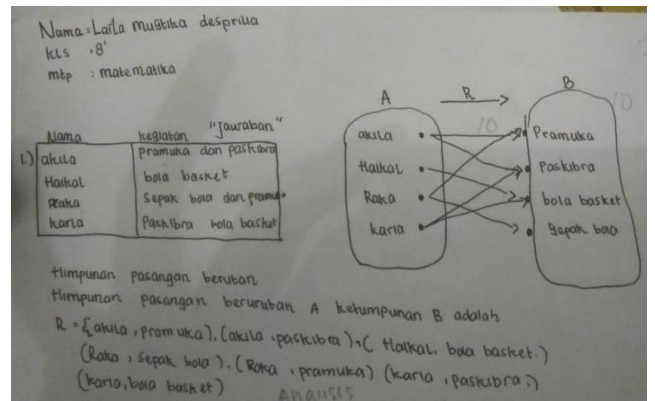 Nama : Laila mustika desprilia
KLS : 8'
mtp : matematika
"Jawaban"
Nama kegiatan
1.) akila pramuka dan paskibra
Haikal bola basket
Raka sepak bola dan pramuka
karla Paskibra bola basket
A R B
10 10
akila Pramuka
Haikal Paskibra
Raka bola basket
karla Sepak bola
Himpunan pasangan berutan
Himpunan pasangan berurutan A kehimpunan B adalah
R = {akila, pramuka), (akila, paskibra), ( Haikal, bola basket.)
(Raka, sepak bola), (Raka, pramuka) (karla, paskibra,)
(karla, bola basket)
Analisis